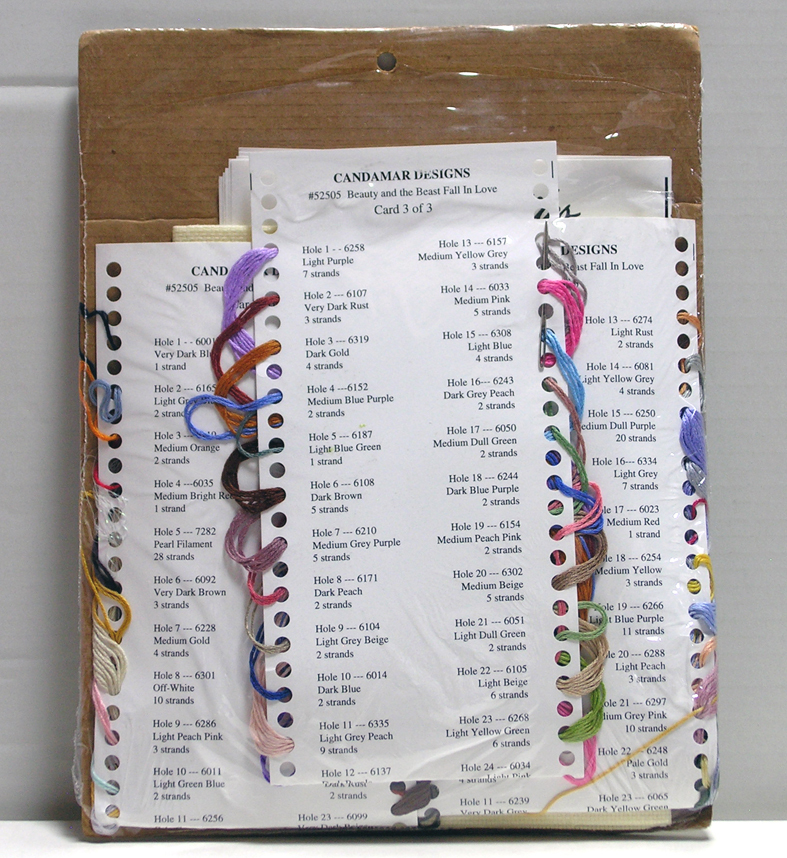 CANDAMAR DESIGNS
#52505 Beauty and the Beast Fall In Love
Card 3 of 3
Hole 1 - - 6258
Light Purple
7 strands
Hole 2 --- 6107
Very Dark Rust
3 strands
Hole 3 --- 6319
Dark Gold
4 strands
Hole 4 --6152
Medium Blue Purple
2 strands
Hole 5 --- 6187
Light Blue Green
1 strand
Hole 6 --- 6108
Dark Brown
5 strands
Hole 7 --- 6210
Medium Grey Purple
5 strands
Hole 8 --- 6171
Dark Peach
2 strands
Hole 9 --- 6104
Light Grey Beige
2 strands
Hole 10 --- 6014
Dark Blue
2 strands
Hole 11 --- 6335
Light Grey Peach
9 strands
Hole 12 --- 6137
2 strands
Hole 13 --- 6157
Medium Yellow Grey
3 strands
Hole 14 --- 6033
Medium Pink
5 strands
Hole 15 --- 6308
Light Blue
4 strands
Hole 16--- 6243
Dark Grey Peach
2 strands
Hole 17 --- 6050
Medium Dull Green
2 strands
Hole 18 --- 6244
Dark Blue Purple
2 strands
Hole 19 --- 6154
Medium Peach Pink
2 strands
Hole 20 --- 6302
Medium Beige
5 strands
Hole 21 --- 6051
Light Dull Green
2 strands
Hole 22 --- 6105
Light Beige
6 strands
Hole 23 --- 6268
Light Yellow Green
6 strands
Hole 24 --- 6034
Light Pink
4 strands
CAND
#52505
Hole 1 - - 6001
Very Dark
1 strand
Hole 2 --- 6165
Light
Hole 3
Medium Orange
2 strands
Hole 4 --6035
Medium Bright
1 strand
Hole 5 --- 7282
Pearl Filament
28 strands
Hole 6 --- 6092
Very Dark Brown
3 strands
Hole 7 --- 6228
Medium Gold
4 strands
Hole 8 --- 6301
Off-White
10 strands
Hole 9 --- 6286
Light Peach Pink
3 strands
Hole 10 --- 6011
Light Green Blue
2 strands
Hole 11 --- 6256
Hole 23 --- 6099
DESIGNS
Beast Fall In Love
Hole 13 --- 6274
Light Rust
2 strands
Hole 14 --- 6081
Light Yellow Grey
4 strands
Hole 15 --- 6250
Dull Purple
20 strands
Hole 16--- 6334
Light Grey
7 strands
17 --- 6023
Medium Red
1 strand
18 --- 6254
Medium Yellow
3 strands
19 --- 6266
Blue Purple
11 strands
20 --- 6288
Light Peach
3 strands
21 --- 6297
Grey Pink
10 strands
Hole 22 --- 6248
Pale Gold
3 strands
Hole 23 --- 6065
Dark Yellow Green
Hole 11 --- 6239
Very Dark Grey